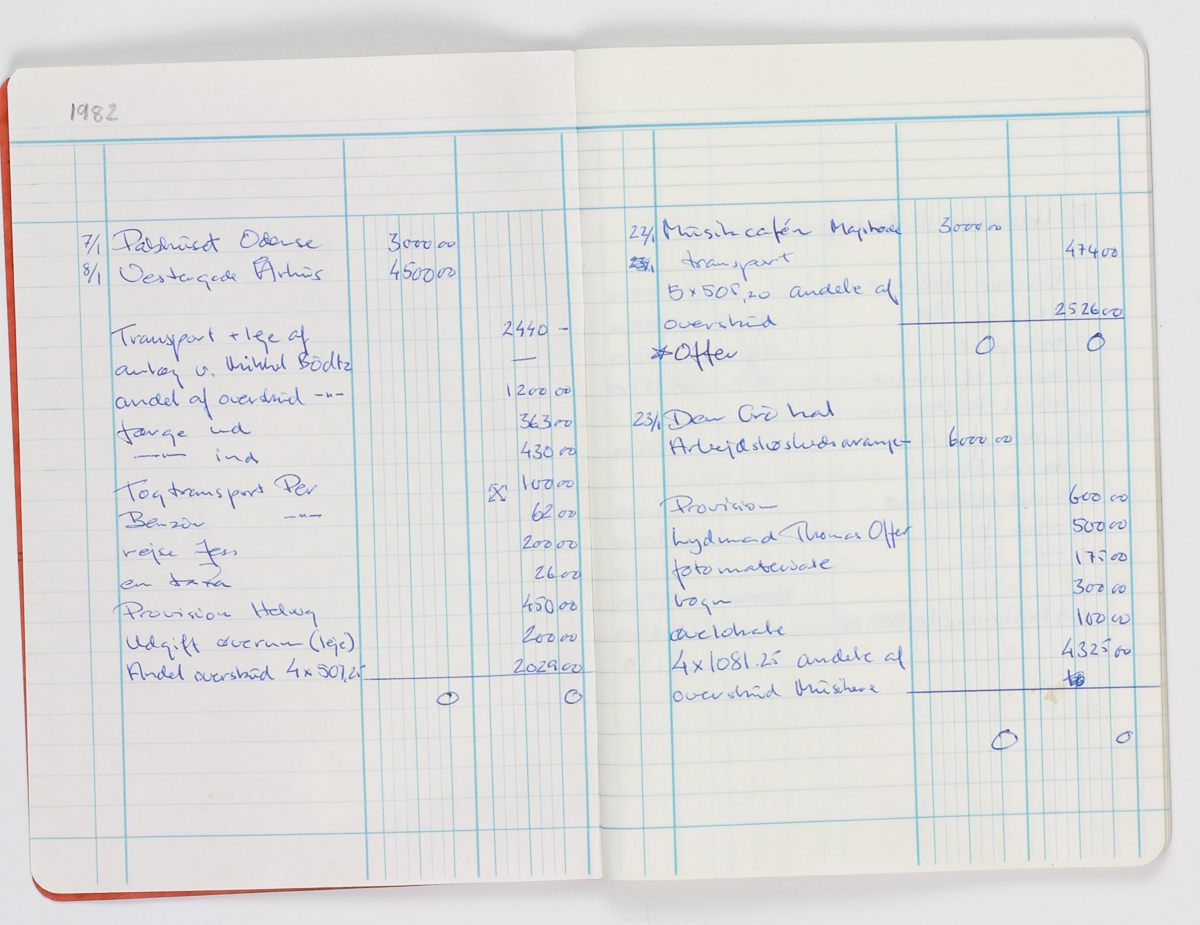 1982
7/1 Palshuset Odense 3000 00
8/1 Vestergade Århus 4500 00
Transport + leje af 2440 -
anlæg v. Mikkel Bödtz —
andel af overskud -"- 1200 00
færge ud 363 00
—"— ind 430 00
Togtransport Per 100 00
Benzin -"- 62 00
rejse Jens 200 00
en taxa 26 00
Provision Helwig 450 00
Udgift øverum (leje) 200 00
Andel overskud 4 x 507,25 2029 00
0 0
22/1 Musikcaféen 3000 00
transport 474 00
5 x 505,20 andele af
overskud 2526 00
* Offer 0 0
23/1 Den Grå hal
6000 00
Provision 600 00
lydmand Thomas Offer 500 00
fotomateriale 175 00
vogn 300 00
øvelokale 100 00
4 x 1081.25 andele af 4325 00
overskud Musikere
0 0